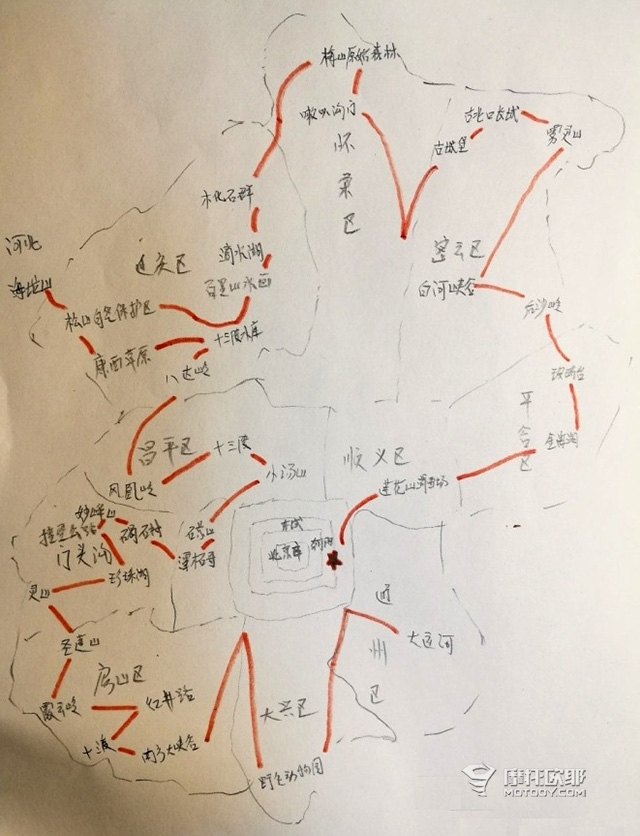 喇叭沟门
古北口长城
雾灵山
怀
柔
区
古城堡
木化石群
河北
延庆区
滴水湖
密云区
海坨山
百里山水画
白河峡谷
松山自然保护区
十三陵水库
康西草原
八达岭
平
谷
区
金海湖
昌平区
十三陵
顺义区
小汤山
莲花山滑雪场
凤凰岭
妙峰山
门头沟
潭柘寺
北京市
朝阳
珍珠湖
灵山
通
州
区
大运河
圣莲山
房山区
霞云岭
红井路
大兴区
十渡
野生动物园
摩托欧耶
MOTOOY.COM